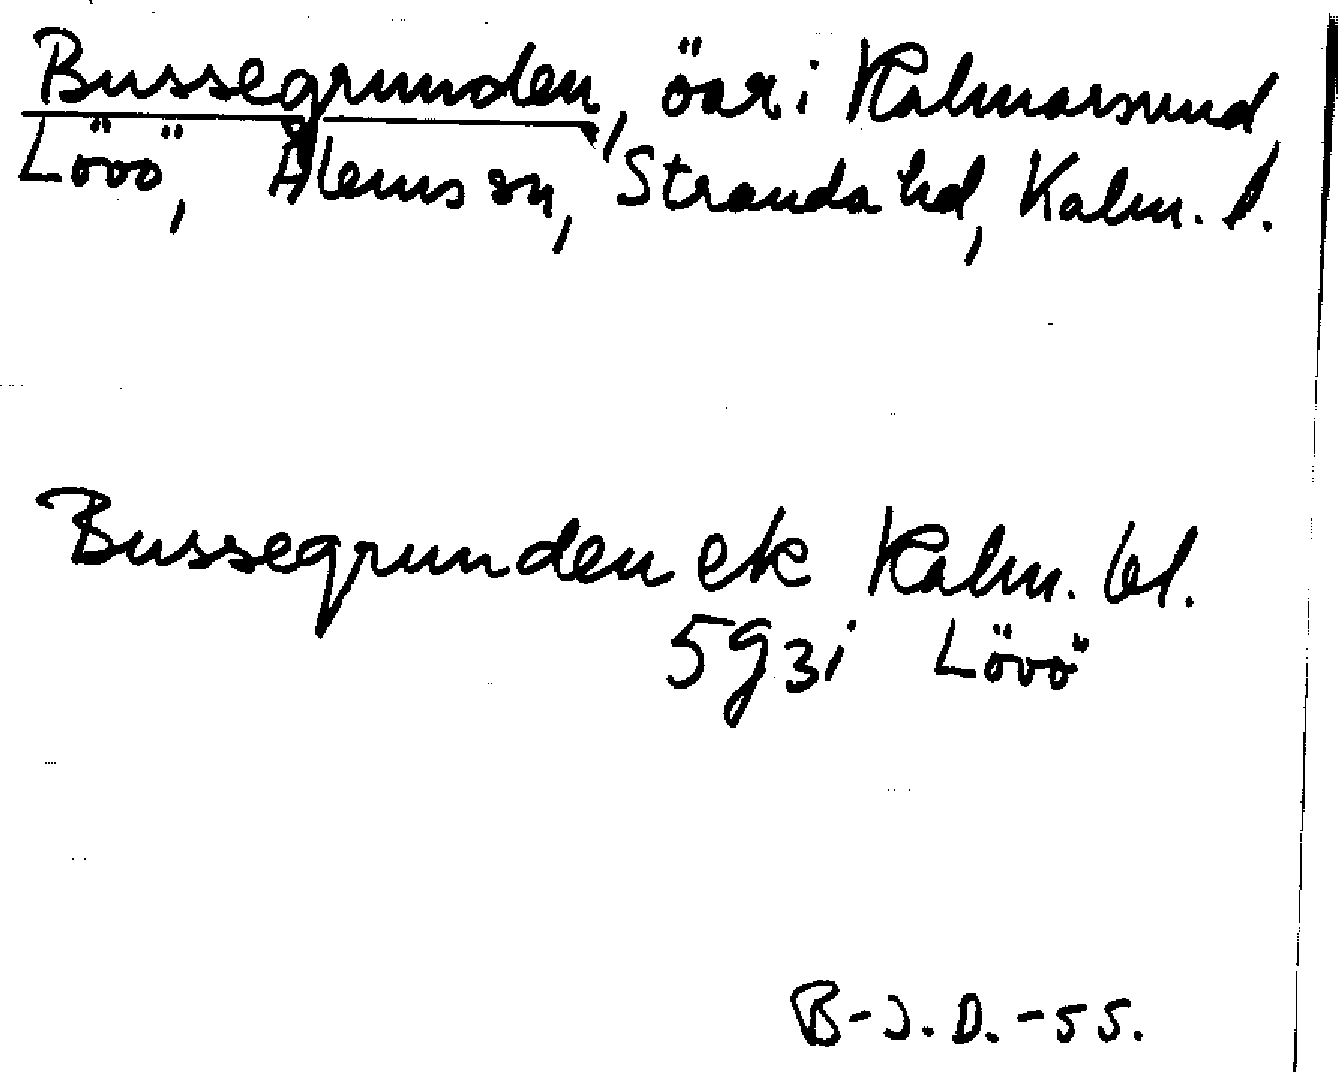 Bussegrunden, öar i Kalmarsund,
Lövö, Ålems sn, Stranda hd, Kalm. l.
Bussegrunden ek Kalm. bl.
5g3i Lövö
B-J.D.-55.